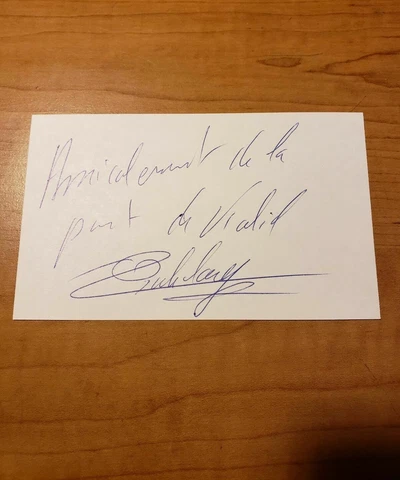 Amicalement de la
part de Walid